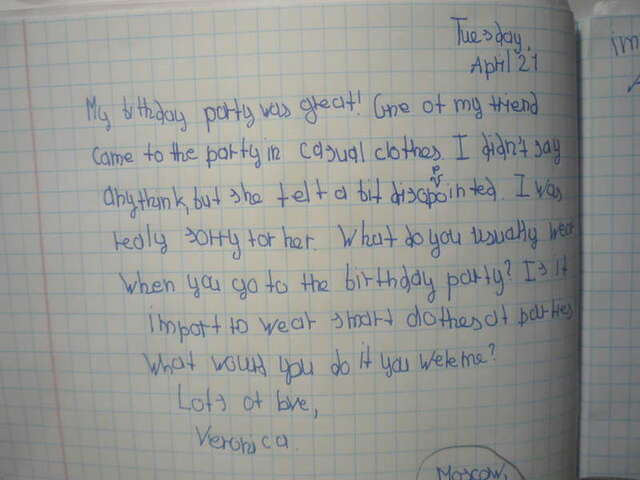 Tuesday,
April 21
My bithday party was great! One of my friend
came to the party in casual clothes. I didn't say
anythink, but she felt a bit disappointed. I was
really sorry for her. What do you usually wear
when you go to the birthday party? Is it
import to wear smart clothes at parties
What would you do if you were me?
Lots of love,
Veronica.
Moscow,
im